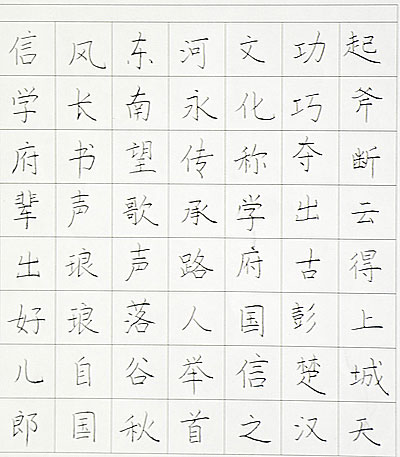 起斧断云得上城天
功巧夺出古彭楚汉
文化称学府国信之
河永传承路人举首
东南望歌声落谷秋
风长书声琅琅自国
信学府辈出好儿郎